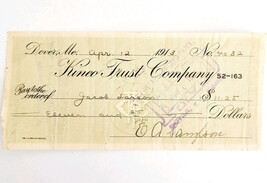 Dover, Me. Apr 12 1913 No.
Kineo Trust Company 52-163
Pay to the
order of Jacob $11.25
Eleven and Dollars
E A Sampson